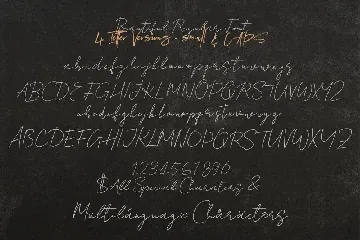 Beautiful Number Font
4 letter Versions - small & CAPS
a b c d e f g h i j k l m n o p q r s t u v w x y z
ABCDEFGHIJKLMNOPQRSTUVWXYZ
a b c d e f g h i j k l m n o p q r s t u v w x y z
ABCDEFGHIJKLMNOPQRSTUVWXYZ
1234567890
$ All Special Characters &
Multilánguage Chäräcters